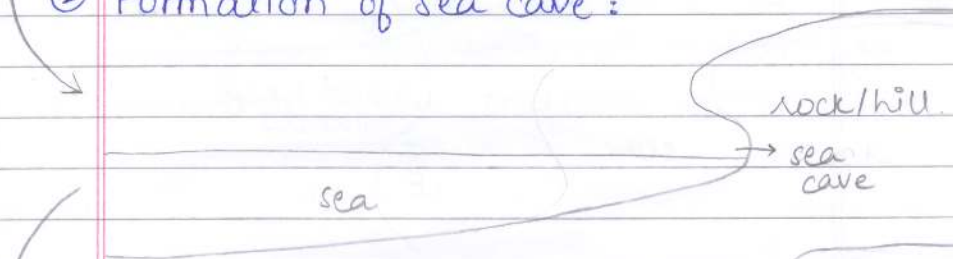 ② Formation of sea cave :
rock/hill.
→ sea
cave
sea